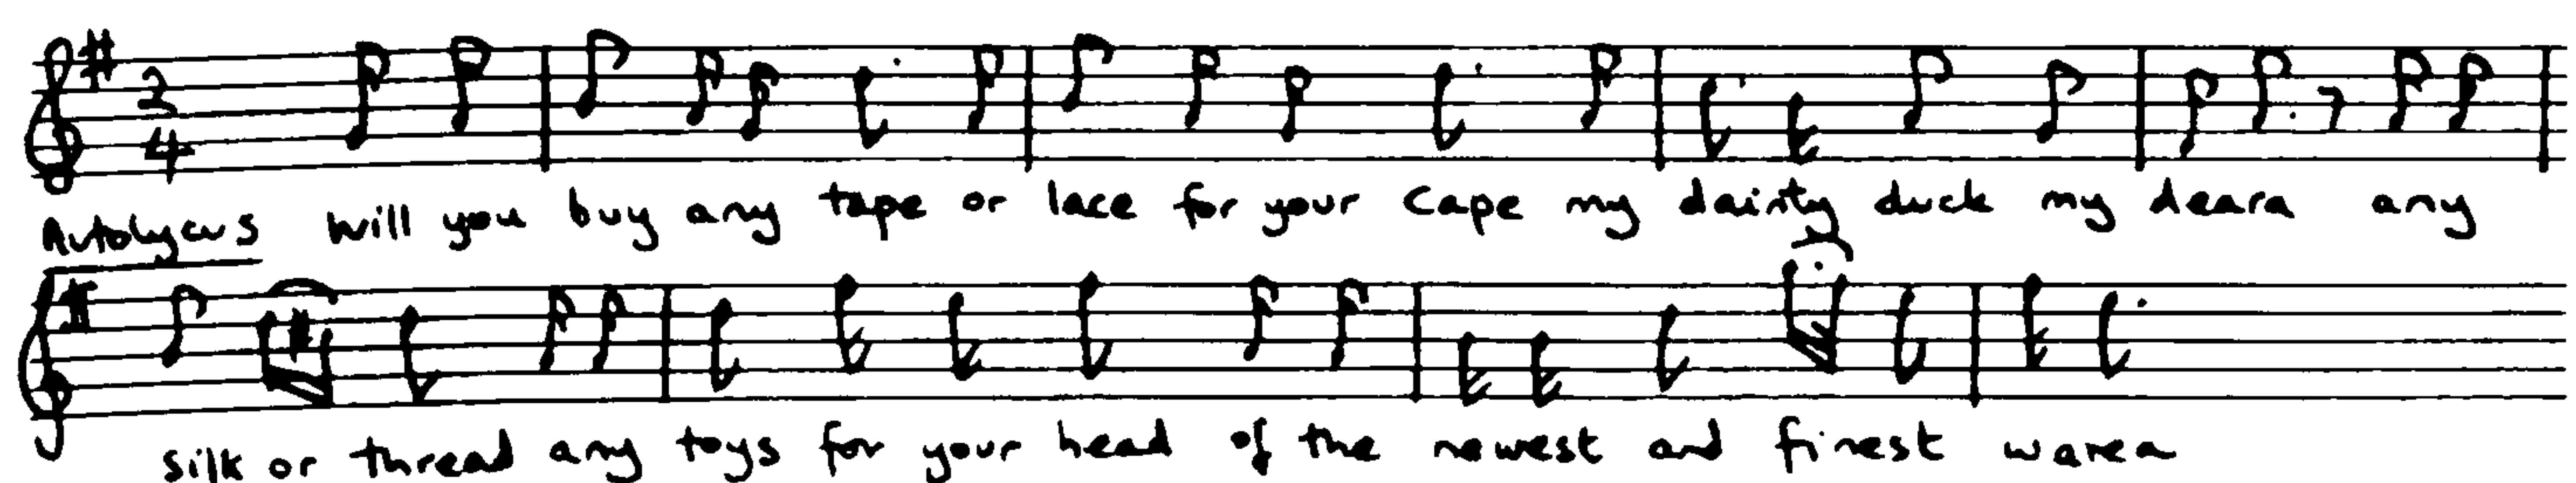 2
4
Autolycus Will you buy any tape or lace for your Cape my dainty duck my deara any
silk or thread any toys for your head of the newest and finest warea